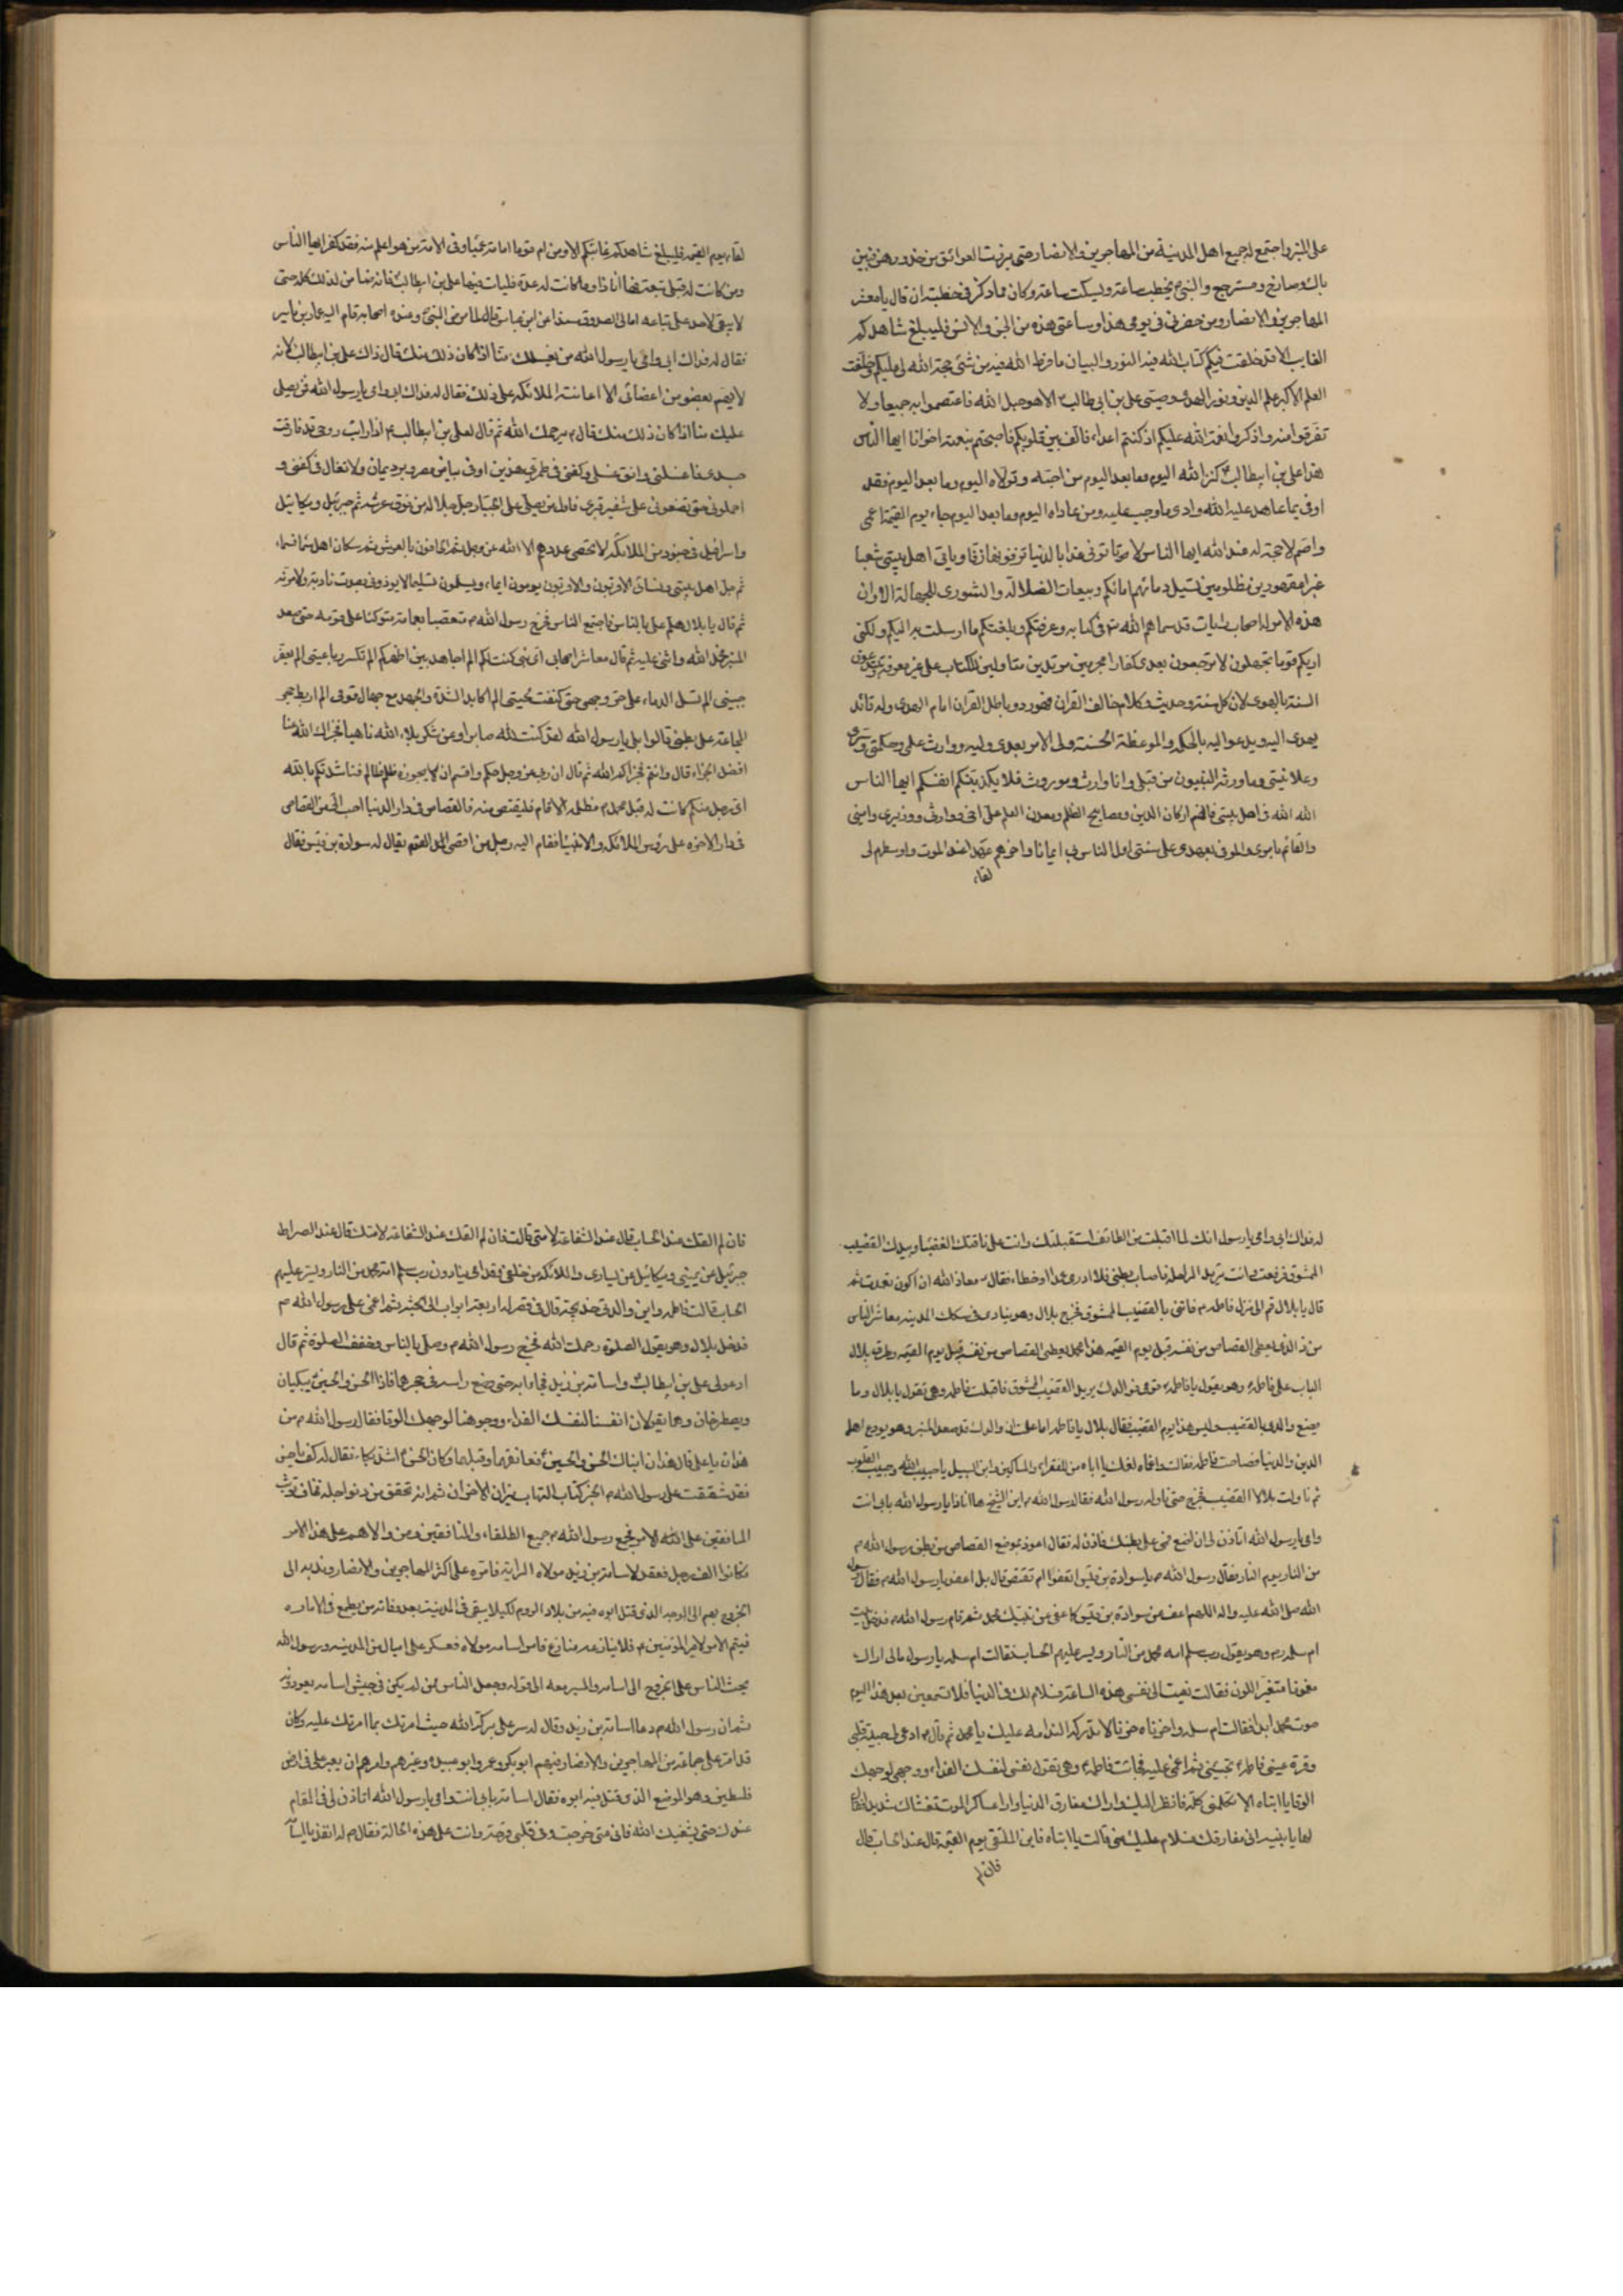 على المنبر واجتمع له جميع اهل المدينة من المهاجرين والانصار حتى برزت العواتق من خدورهن فبين
باك وصارخ ومسترجع والنبي يخطب ساعة ويسكت ساعة وكان مما ذكر في خطبته ان قال يا معشر
المهاجرين والانصار ومن حضرني في يومي هذا وساعتي هذه من الجن والانس فليبلغ شاهدكم
الغايب الا قد خلفت فيكم كتاب الله فيه النور والبيان ما فرط الله فيه من شئ حجة الله لي عليكم وخلفت
العلم الاكبر علم الدين ونور الهدى وصيتي علي بن ابي طالب الا هو حبل الله فاعتصموا به جميعا ولا
تفرقوا منه واذكروا نعمة الله عليكم اذ كنتم اعداء فالف بين قلوبكم فاصبحتم بنعمته اخوانا ايها الناس
هذا علي بن ابيطالب كنز الله اليوم وما بعد اليوم من احبه وتولاه اليوم وما بعد اليوم فقد
اوفى بما عاهد عليه الله وادى ما وجب عليه ومن عاداه اليوم وما بعد اليوم جاء يوم القيمة اعمى
واصم لا حجة له عند الله ايها الناس لا تاتوني غدا بالدنيا تزفونها زفا وياتي اهل بيتي شعثا
غبرا مقهورين مظلومين تسيل دمائهم امامكم وبيعات الضلالة والشورى للجهالة الا وان
هذه الامر له اصحاب وايات قد سماهم الله في كتابه وعرفتكم وبلغتكم ما ارسلت به اليكم ولكني
اريكم قوما تجهلون لا ترجعون بعدي كفارا مرتدين متاولين للكتاب على غير معرفة وتبتدعون
السنة بالهوى لان كل سنة وحديث وكلام خالف القران فهو رد وباطل القران امام الهدى وله قائد
يهدى اليه ويدعو اليه بالحكمة والموعظة الحسنة ولي الامر بعدي وليه ووارث علمي وحكمتي وسري
وعلانيتي وما ورثه النبيون من قبلي وانا وارث ومورث فلا يكذبنكم انفسكم ايها الناس
الله الله في اهل بيتي فانهم اركان الدين ومصابيح الظلم ومعدن العلم علي اخي ووارثي ووزيري واميني
والقائم بامري والموفي بعهدي على سنتي اول الناس بي ايمانا واخرهم عهدا عند الموت واوسطهم لي
لقاء
لقاء يوم القيمة فليبلغ شاهدكم غائبكم الا ومن ام قوما امامة عمياء وفي الامة من هو اعلم منه فقد كفر ايها الناس
ومن كانت له قبلي تبعة فها انا ذا ومن كانت له عدة فليات فيها علي بن ابيطالب فانه ضامن لذلك كله حتى
لا يبقى لاحد علي تباعة امالي الصدوق مسندا عن ابن عباس قال لما مرض النبي وعنده اصحابه قام اليه عمار بن ياسر
فقال له فداك ابي وامي يا رسول الله من يغسلك منا اذا كان ذلك منك قال ذاك علي بن ابيطالب لانه
لا يهم بعضو من اعضائي الا اعانته الملائكة على ذلك فقال له فداك ابي وامي يا رسول الله فمن يصلي
عليك منا اذا كان ذلك منك قال م يرحمك الله ثم قال لعلي بن ابيطالب اذا رايت روحي قد فارقت
جسدي فاغسلني وانق غسلي وكفني في طمري هذين او في بياض مصر وبرد يمان ولا تغال في كفني و
احملوني حتى تضعوني على شفير قبري فاول من يصلي علي الجبار جل جلاله من فوق عرشه ثم جبرئيل وميكائيل
واسرافيل في جنود من الملائكة لا تحصى عددهم الا الله عز وجل ثم الحافون بالعرش ثم سكان اهل سماء فسماء
ثم جل اهل بيتي ونسائي الاقربون والاقربون يومون ايماء ويسلمون تسليما لا يوذوني بصوت نادبة ولا مرنة
ثم قال يا بلال هلم علي بالناس فاجتمع الناس فخرج رسول الله متعصبا بعمامة متوكئا على قوسه حتى صعد
المنبر فحمد الله واثنى عليه ثم قال معاشر اصحابي اي نبي كنت لكم الم اجاهد بين اظهركم الم تكسر رباعيتي الم يعفر
جبيني الم تسل الدماء على حر وجهي حتى كنفت لحيتي الم اكابد الشدة والجهد مع جهال قومي الم اربط حجر
المجاعة على بطني قالوا بلى يا رسول الله لقد كنت لله صابرا وعن شكر بلاء الله ناهيا فجزاك الله عنا
افضل الجزاء قال وانتم فجزاكم الله ثم قال ان ربي عز وجل حكم واقسم ان لا يجوزه ظلم ظالم فناشدتكم بالله
اي رجل منكم كانت له قبل محمد مظلمة الا قام فليقتص منه فالقصاص في دار الدنيا احب الي من القصاص
في دار الاخرة على رؤس الملائكة والانبياء فقام اليه رجل من اقصى القوم يقال له سوادة بن قيس فقال
له فداك ابي وامي يا رسول انك لما اقبلت من الطائف استقبلتك وانت على ناقتك الغضباء وبيدك القضيب
الممشوق فرفعت وانت تريد الراحلة فاصاب بطني فلا ادري عمدا او خطاء فقال معاذ الله ان اكون تعمدت ثم
قال يا بلال قم الى منزل فاطمة فاتني بالقضيب الممشوق فخرج بلال وهو ينادي في سكك المدينة معاشر الناس
من ذا الذي يعطي القصاص من نفسه قبل يوم القيمة هذا محمد يعطي القصاص من نفسه قبل يوم القيمة وطرق بلال
الباب على فاطمة وهو يقول يا فاطمة قومي فوالدك يريد القضيب الممشوق فاقبلت فاطمة وهي تقول يا بلال وما
يصنع والدي بالقضيب وليس هذا يوم القضيب فقال بلال يا فاطمة اما علمت ان والدك قد صعد المنبر وهو يودع اهل
الدين والدنيا فصاحت فاطمة فقالت واغماه لغمك يا اباه من للفقراء والمساكين وابن السبيل يا حبيب الله وحبيب القلوب
ثم ناولت بلالا القضيب فخرج حتى ناوله رسول الله فقال رسول الله اين الشيخ ها انا ذا يا رسول الله بابي انت
وامي يا رسول الله اتاذن لي ان اضع فمي على بطنك فاذن له فقال اعوذ بموضع القصاص من بطن رسول الله م
من النار يوم النار فقال رسول الله يا سوادة بن قيس اتعفوا ام تقتص قال بل اعفو يا رسول الله فقال رسول
الله صلى الله عليه واله اللهم اعف عن سوادة بن قيس كما عفى عن نبيك محمد ثم قام رسول الله فدخل بيت
ام سلمة وهو يقول رب سلم امة محمد من النار ويسر عليهم الحساب فقالت ام سلمة يا رسول مالي اراك
مغموما متغير اللون فقالت نعيت الي نفسي هذه الساعة فسلام لك في الدنيا فلا تسمعين بعد هذا اليوم
صوت محمد ابدا فقالت ام سلمة واحزناه حزنا لا تدركه الندامة عليك يا محمد ثم قال ادعي لي حبيبة قلبي
وقرة عيني فاطمة تجيئني ثم اغمي عليه فجائت فاطمة وهي تقول نفسي لنفسك الفداء ووجهي لوجهك
الوقا يا ابتاه الا تكلمني كلمة فاني انظر اليك واراك مفارق الدنيا وارى عساكر الموت تغشاك شديدا فقال
لها يا بنية اني مفارقك فسلام عليك مني قالت يا ابتاه فاين الملتقى يوم القيمة قال عند الحساب قال
فان لم
فان لم القك عند الحساب قال عند الشفاعة لامتي قالت فان لم القك عند الشفاعة لامتك قال عند الصراط
جبرئيل عن يميني وميكائيل عن يساري والملائكة من خلفي وقدامي ينادون رب سلم امة محمد من النار ويسر عليهم
الحساب قالت فاطمة واين والدتي خديجة قال في قصر له اربعة ابواب الى الجنة ثم اغمي على رسول الله م
فدخل بلال وهو يقول الصلوة رحمك الله فخرج رسول الله وصلى بالناس وخفف الصلوة ثم قال
ادعوا لي علي بن ابيطالب واسامة بن زيد فجاءا به حتى وضع راسه في حجرها فاذا الحسن والحسين يبكيان
ويصطرخان وهما يقولان انفسنا لنفسك الفداء ووجوهنا لوجهك الوقا فقال رسول الله من
هذان يا علي قال هذان ابناك الحسن والحسين فعانقهما وقبلهما وكان الحسن اشد بكاء فقال له كف يا حسن
فقد شققت على رسول الله الخبر كتاب التهاب نيران الاحزان ثم انه تحقق من دنو اجله فخاف توثب
المنافقين على الله الامر فجمع رسول الله جميع الطلقاء والمنافقين ومن والاهم على هذا الامر
فكانوا الف رجل فعقد لاسامة بن زيد مولاه الراية فامره على اكثر المهاجرين والانصار وندبه الى
الخروج بهم الى الوجه الذي قتل ابوه فيه من بلاد الروم لكيلا يبقى في المدينة بعد وفاته من يطمع في الامارة
فيتم الامر لامير المؤمنين فلا ينازعه منازع فامر اسامة مولاه فعسكر على اميال من المدينة ورسول الله
يحث الناس على الخروج الى اسامة والمسير معه الى قوله وجعل الناس ممن لم يكن في جيش اسامة يعودونه
ثم ان رسول الله دعا اسامة بن زيد وقال له سر على بركة الله حيث امرتك بما امرتك عليه وكان
قد امره على جماعة من المهاجرين والانصار فيهم ابو بكر وعمر وابو عبيدة وغيرهم وامرهم ان يعبر على في ارض
فلسطين وهو الموضع الذي قتل فيه ابوه فقال اسامة بابي انت وامي يا رسول الله اتاذن لي في المقام
عندك حتى يشفيك الله فاني متى خرجت وفي قلبي قرحة وانت على هذه الحالة فقال م له انفذ يا اسامة